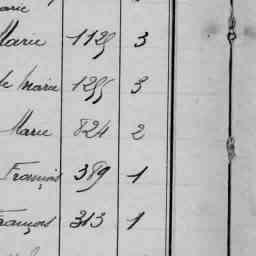 Marie
Marie 1125 3
de Marie 1255 3
Marie 824 2
François 389 1
François 313 1